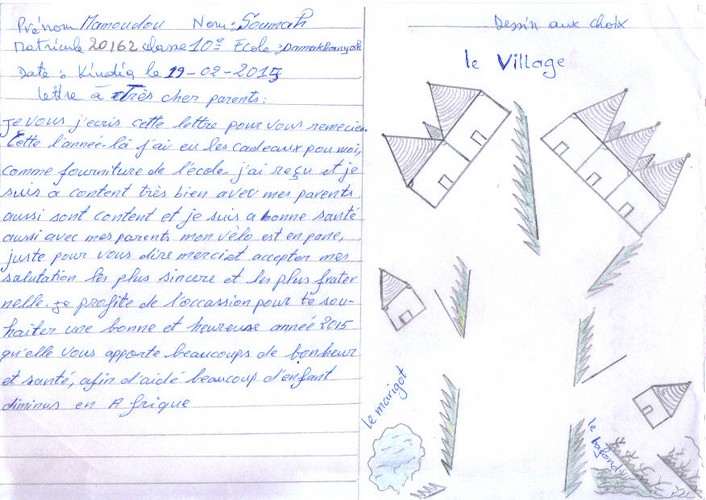 Prénom Mamoudou Nom: Soumah
Matricule 20162 classe 10e Ecole: Damakhanyah
Date: Kindia le 19-02-2015
lettre à Très cher parents:
je vous j'ecris cette lettre pour vous remecier.
Cette l'année-là j'ai eu les cadeaux pou moi,
comme fourniture de l'écoles j'ai reçu et je
suis a content très bien avec mes parents
aussi sont content et je suis a bonne santé
aussi avec mes parents mon vélo est en pane,
juste pour vous dire merci et accepter mes
salutation les plus sincere et les plus frater
nelle. je profite de l'occassion pour te sou-
haiter une bonne et heureuse année 2015
qu'elle vous apporte beaucoups de bonheur
et santé, afin d'aidé beaucoup d'enfant
diminus en Afrique
Dessin aux choix
le Village
le marigot
le bafond